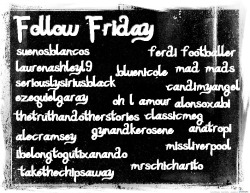 Follow Friday
suenosblancos ferdi footballer
laurenashley19 bluenicole mad mads
seriouslysiriusblack candimyangel
ezequielgaray oh l amour alonsoxabi
thetruthandotherstories classicmeg
alecramsey gynandkerosene anatropi
ibelongtogutixcanando missliverpool
takethechipsaway mrschicharito